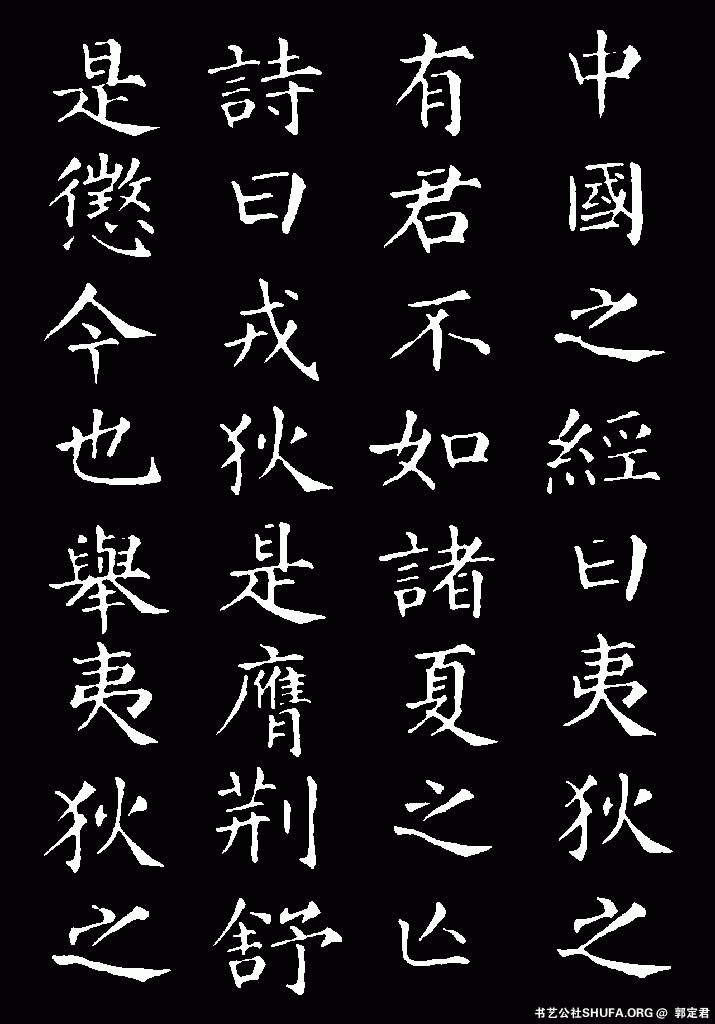 中國之經曰夷狄之
有君不如諸夏之亾
詩曰戎狄是膺荆舒
是懲今也舉夷狄之
书艺公社SHUFA.ORG @ 郭定君